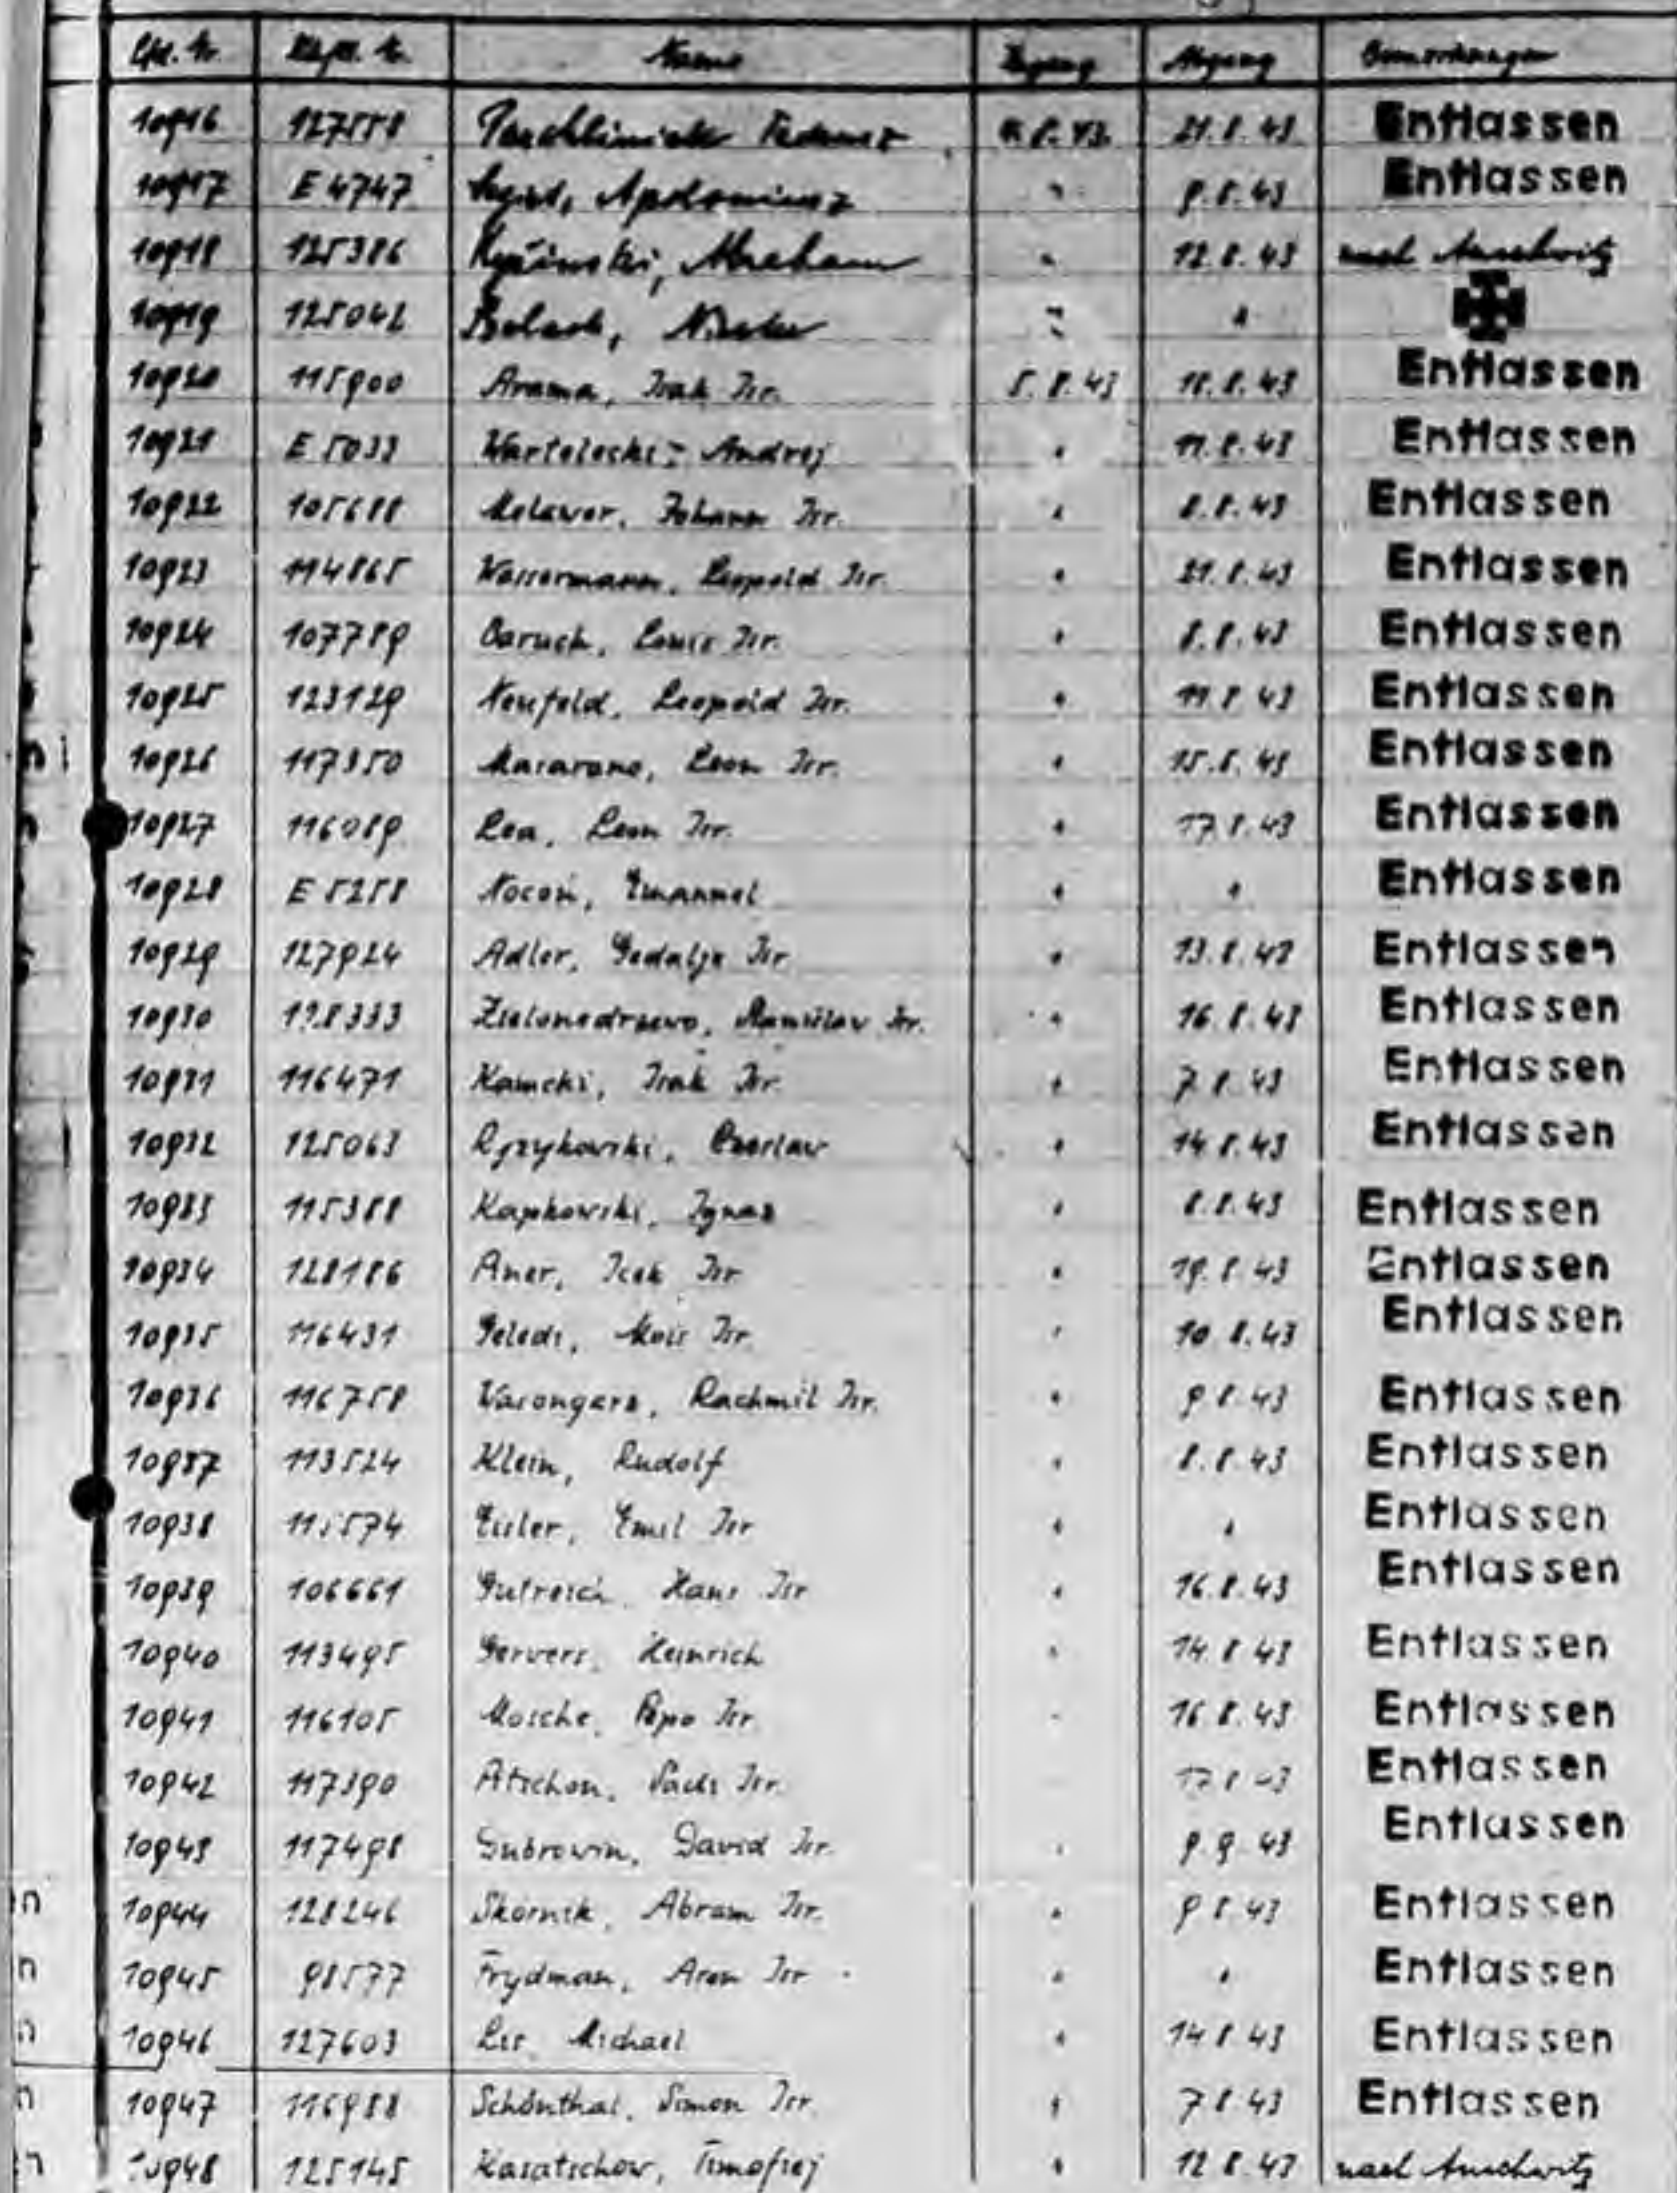 Lfd. Nr. Name Zugang Abgang Bemerkungen
10916 21.8.43 Entlassen
10917 E 4747 Apolominez " 9.8.43 Entlassen
10918 125386 Abraham " 12.8.43 nach Auschwitz
10919 125042 " "
10920 115900 Arama, Isak Isr. 5.8.43 18.8.43 Entlassen
10921 E 5033 Andrej " 11.8.43 Entlassen
10922 105688 Johann Isr. " 8.8.43 Entlassen
10923 114865 Wassermann, Leopold Isr. " 21.8.43 Entlassen
10924 107789 Baruch, Louis Isr. " 8.8.43 Entlassen
10925 123129 Neufeld, Leopold Isr. " 11.8.43 Entlassen
10926 117350 Masarano, Leon Isr. " 15.8.43 Entlassen
10927 116089 Lea, Leon Isr. " 17.8.43 Entlassen
10928 E 5258 Nocoń, Emanuel " " Entlassen
10929 127924 Adler, Gedalje Isr. " 13.8.43 Entlassen
10930 128333 Isr. " 16.8.43 Entlassen
10931 116471 Kamchi, Isak Isr. " 7.8.43 Entlassen
10932 125063 " 14.8.43 Entlassen
10933 115388 Kapkowski, Ignaz " 8.8.43 Entlassen
10934 128186 Icek Isr " 19.8.43 Entlassen
10935 116431 Geledi, Mois Isr. " 10.8.43 Entlassen
10936 116758 Rachmil Isr. " 9.8.43 Entlassen
10937 113524 Klein, Rudolf " 8.8.43 Entlassen
10938 115574 Eisler, Emil Isr " " Entlassen
10939 106661 Gutreich Hans Isr " 16.8.43 Entlassen
10940 113495 Gervers, Heinrich " 14.8.43 Entlassen
10941 116105 Mosche, Pepo Isr. 16.8.43 Entlassen
10942 117390 Atschon, Isr. 17.8.43 Entlassen
10943 117498 Dubrowin, David Isr. " 9.9.43 Entlassen
10944 128246 Skornik, Abram Isr. " 9.8.43 Entlassen
10945 98577 Frydman, Aron Isr " " Entlassen
10946 127603 Lis, Michael " 14.8.43 Entlassen
10947 116988 Schönthal, Simon Isr. " 7.8.43 Entlassen
10948 125145 Kasatschow, Timofej " 12.8.43 nach Auschwitz